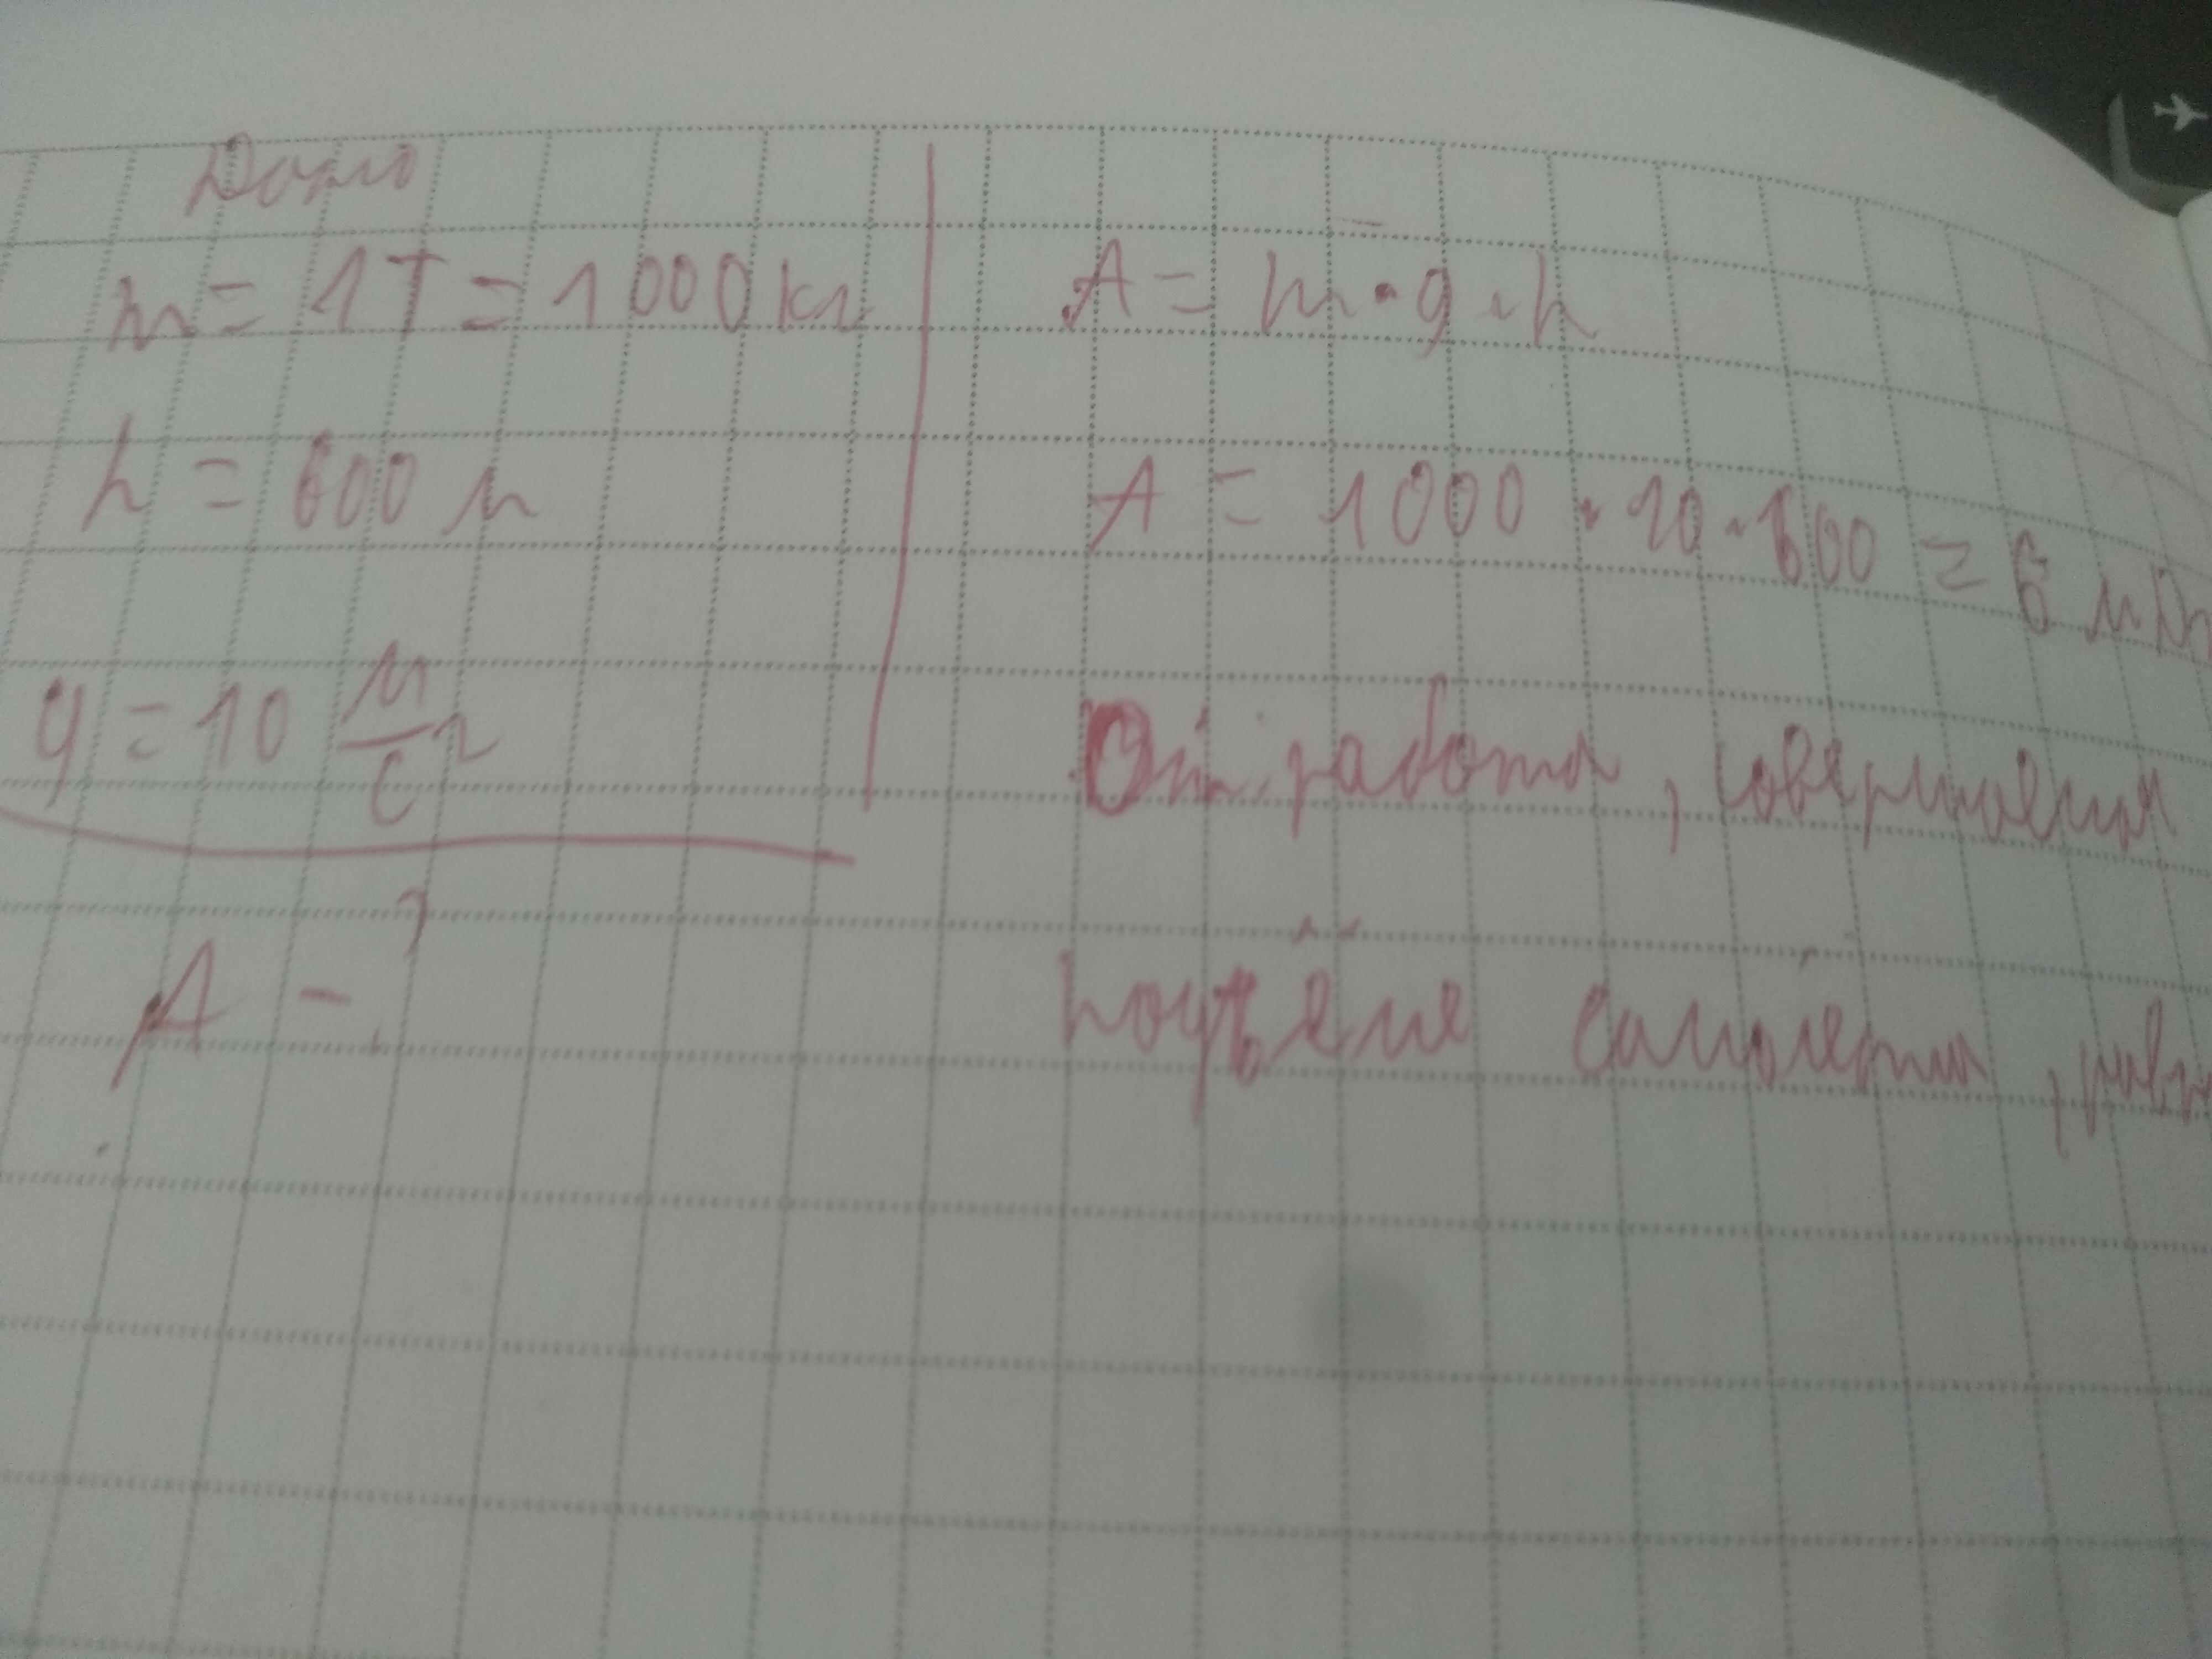 Дано
m = 1т = 1000 кг
h = 600 м
g = 10 м/с²
A - ?
A = m · g · h
A = 1000 · 10 · 600 = 6 мДж
От: работа, совершеная
подъёме самолёта, равн